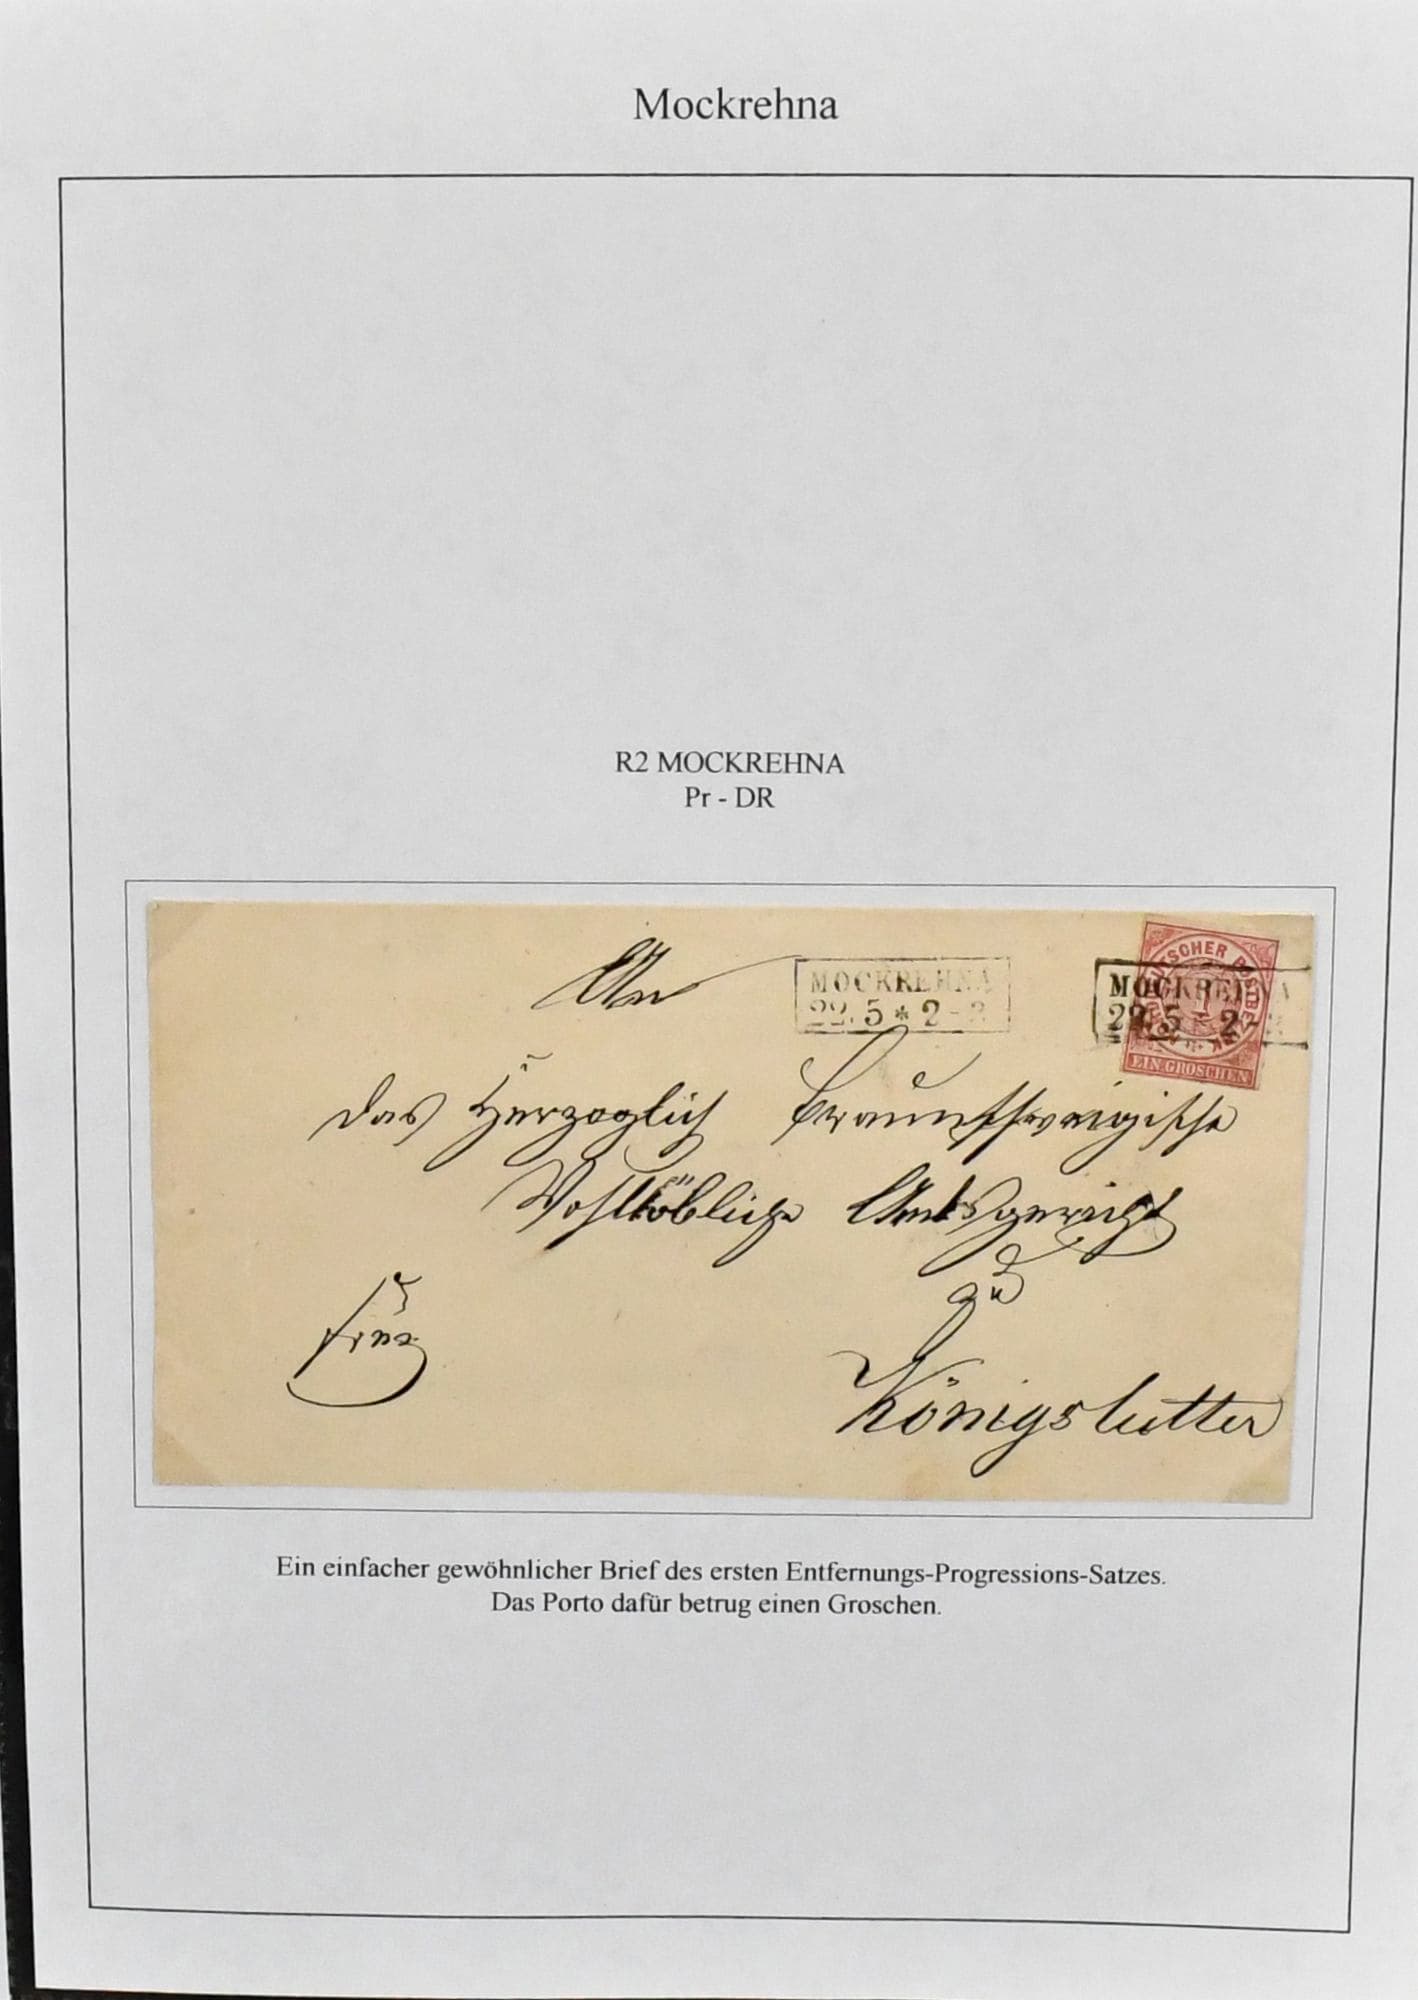 Mockrehna
R2 MOCKREHNA
Pr - DR
An
MOCKREHNA
22.5 * 2 - 3
MOCKREHNA
22.5 * 2 -
NORDDEUTSCHER POSTBEZIRK
1
EIN GROSCHEN
das Herzoglich Braunschweigische
Wohllöbliche Amtsgericht
zu
Königslutter
Ein einfacher gewöhnlicher Brief des ersten Entfernungs-Progressions-Satzes.
Das Porto dafür betrug einen Groschen.